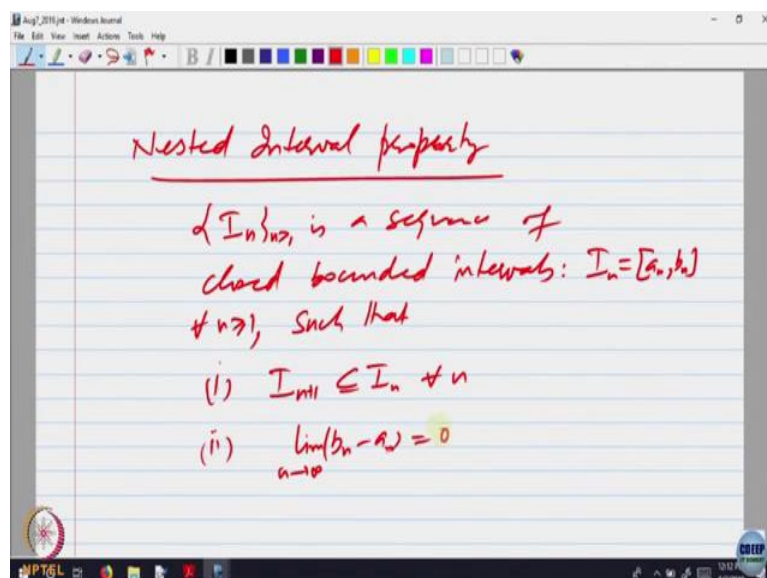 Aug7_2016.jnt - Windows Journal
File Edit View Insert Actions Tools Help
B I
Nested Interval property
{I_n}_{n≥1} is a sequence of
closed bounded intervals: I_n = [a_n, b_n]
∀ n≥1, such that
(i) I_{n+1} ⊆ I_n ∀ n
(ii) lim_{n→∞} (b_n - a_n) = 0
NPTEL
CDEEP
IIT BOMBAY